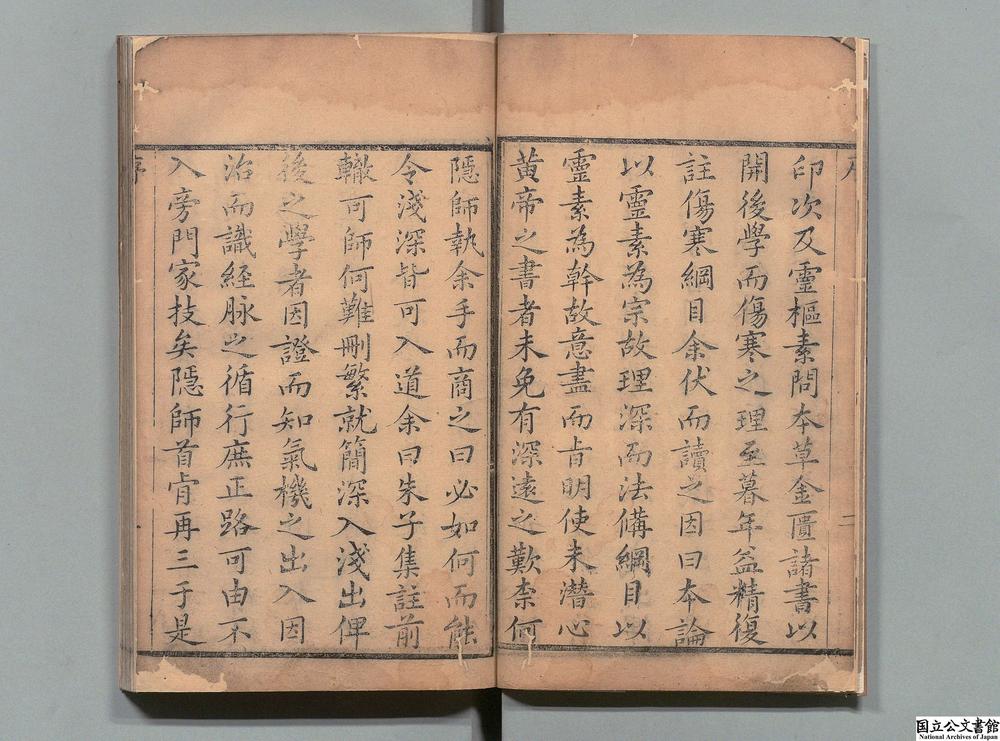 序
二
印次及靈樞素問本草金匱諸書以
開後學而傷寒之理至暮年益精復
註傷寒綱目余伏而讀之因曰本論
以靈素為宗故理深而法備綱目以
靈素為幹故意盡而旨明使未潛心
黃帝之書者未免有深遠之歎柰何
隱師執余手而商之曰必如何而能
令淺深皆可入道余曰朱子集註前
轍可師何難刪繁就簡深入淺出俾
後之學者因證而知氣機之出入因
治而識経脉之循行庶正路可由不
入旁門家技矣隱師首肯再三于是
序
国立公文書館
National Archives of Japan